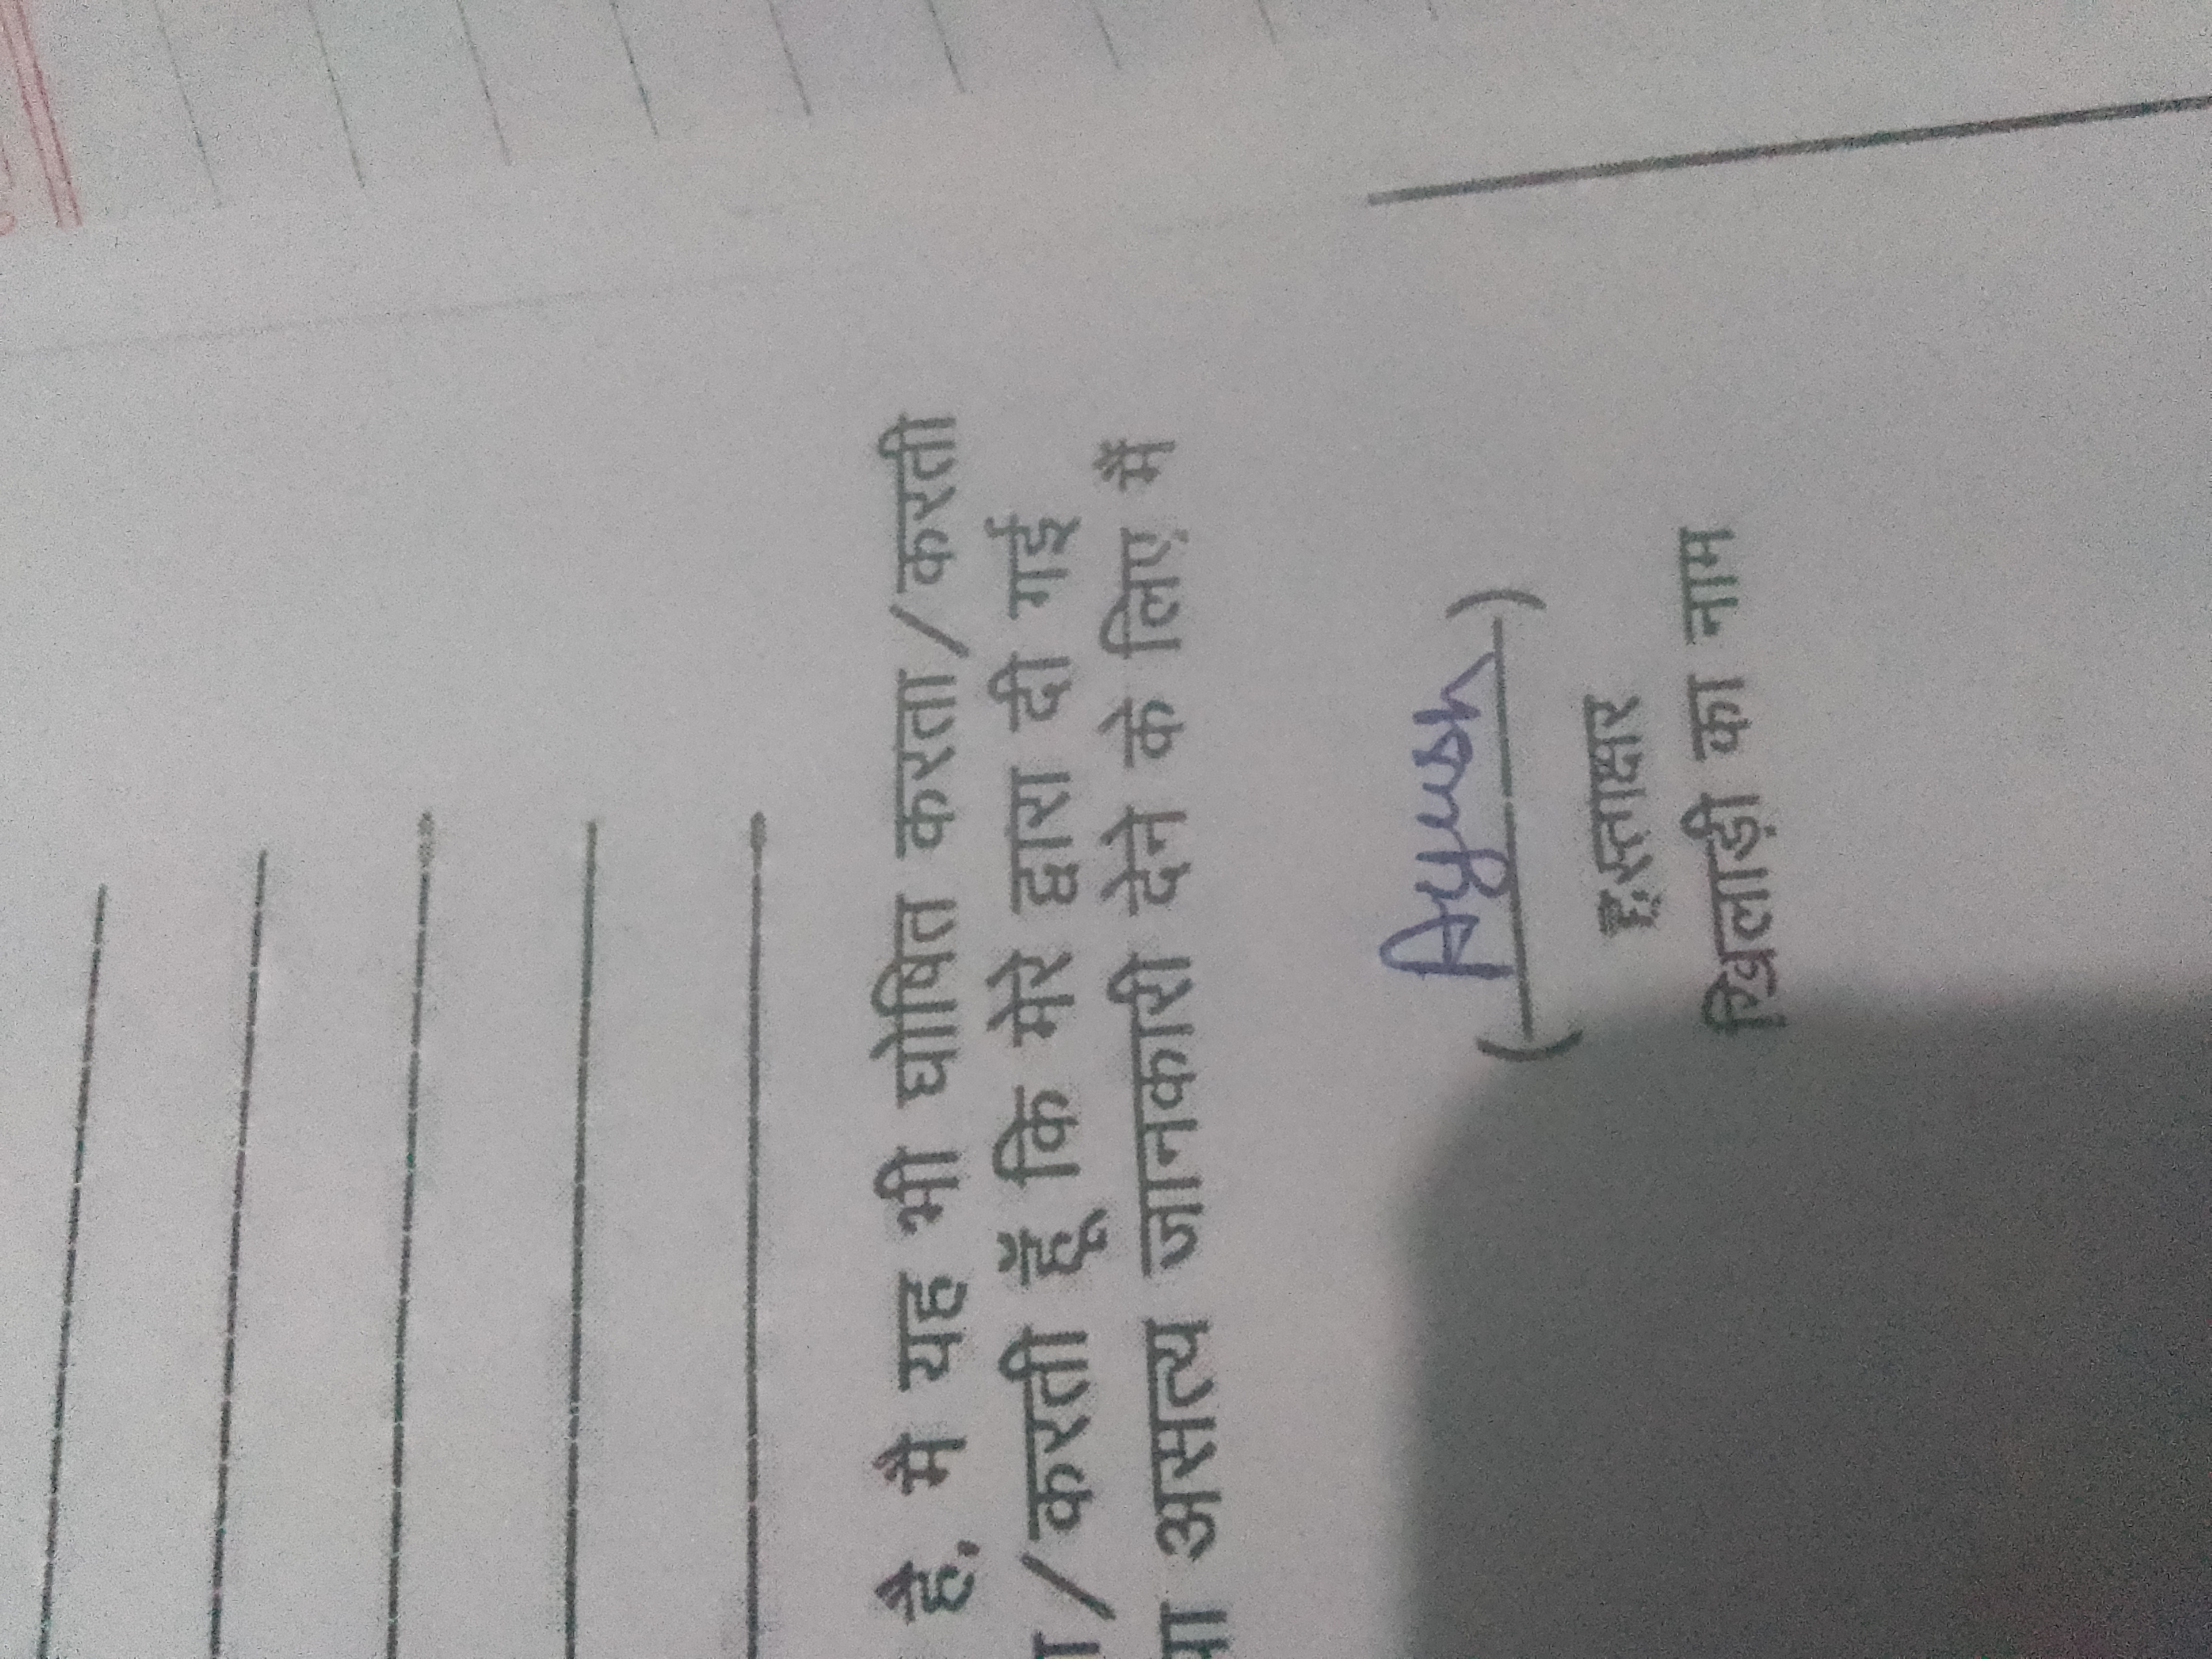 है, मै यह भी घोषित करता/करती
/करती हूँ कि मेरे द्वारा दी गई
असत्य जानकारी देने के लिए मैं
(Ayush)
हस्ताक्षर
खिलाड़ी का नाम